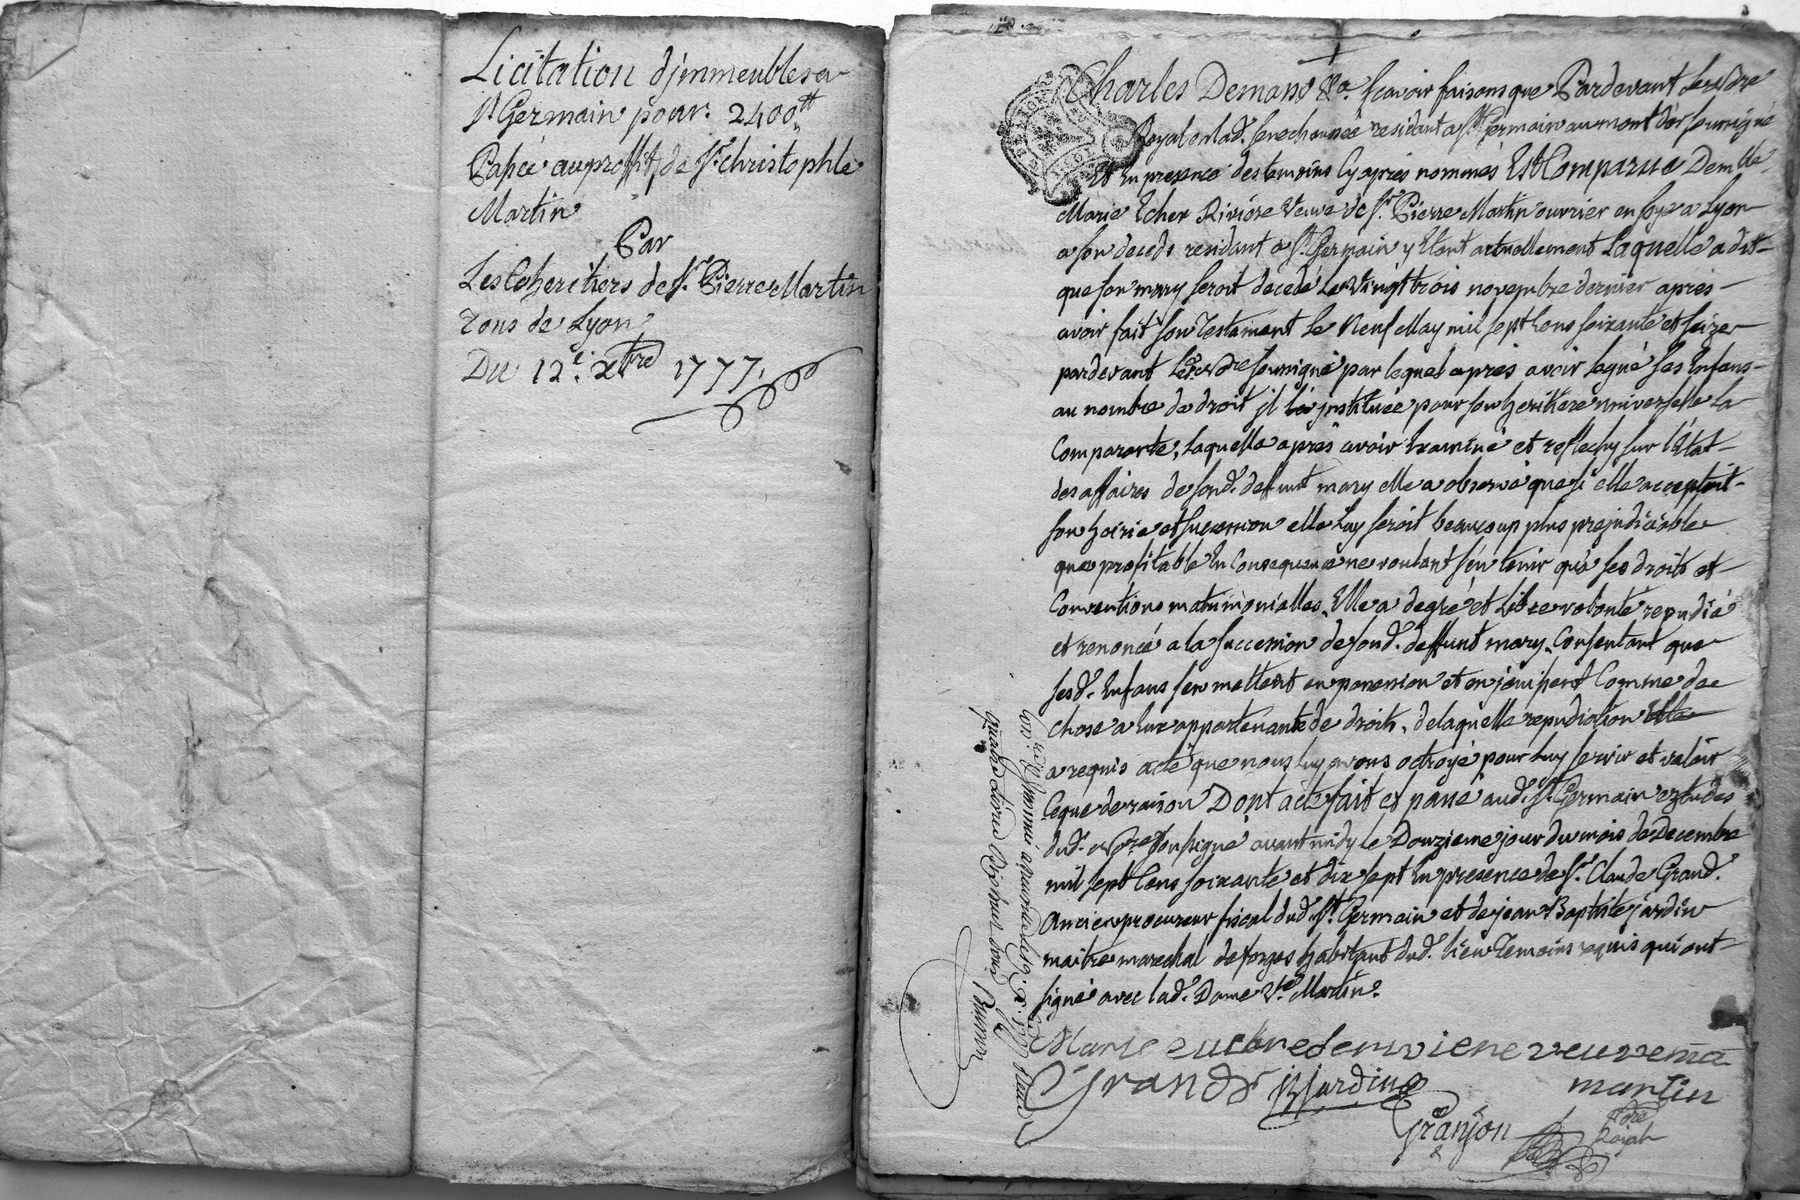 Licitation d'jmmeubles a
St Germain pour 2400 tt
Passée au proffit de Sr. Christophle
Martin
Par
Les Coheritiers de Sr. Pierre Martin
tous de Lyon
Du 12e. xbre 1777.
Charles Demono &a. scavoir faisons que Pardevant le Nore
Royal en lad. senechaussée residant a St Germain au mont d'or soussigné
Et En presence des temoins Cy après nommés Est Comparue Demlle
Marie Echer Riviere Veuve de Sr. Pierre Martin ouvrier en soye a Lyon
a son deceds residant a St. Germain y Etant actuellement Laquelle a dit
que son mary seroit decedé Le Vingt trois novembre dernier après
avoir fait son Testament le Neuf May mil sept Cens soixante et seize
pardevant Le Nore soussigné par lequel après avoir legué ses Enfans
au nombre de droit jl la jnstituée pour son heritiere universelle La
Comparante, Laquelle après avoir Examiné et reflechy sur l'Etat
des affaires de sond. deffunt mary elle a observé que si elle acceptoit
son hoirie et succession elle Luy seroit beaucoup plus prejudiciable
que profitable En Consequence ne voulant s'en tenir qu'a ses droits et
Conventions matrimonialles, Elle a de gré et Libre volonté repudié
et renoncé a la succession de sond. deffunt mary, Consentant que
sesd. Enfans s'en mettent en possession et en jouissent Comme de
chose a Eux appartenante de droit, de laquelle repudiation Elle
a requis acte que nous luy avons octroyé pour Luy servir et valoir
Ce que de raison Dont acte fait et passé aud. St. Germain Etude
dud. Nore soussigné avant midy le Douzieme jour du mois de Decembre
mil sept Cens soixante et dix sept En presence de Sr. Claude Grand.
Ancien procureur fiscal dud. St. Germain et de jean Baptiste jardin
maitre marechal de forges habitant dud. lieu Temoins requis qui ont
signé avec lad. Dame Ve. Martin.
Marie de riviere veuve
martin
Grand jB jardin
Granjon
Nore
Royal
quatre Livres